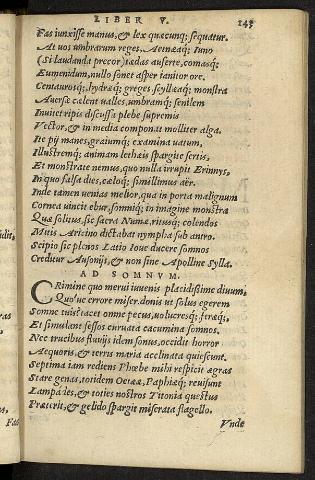 LIBER V. 143
Fas iunxisse manus, & lex quæcunq; sequatur.
At uos umbrarum reges, Aetnæaq; Iuno
(Si laudanda precor) tædas auferte, comasq;
Eumenidum, nullo sonet asper ianitor ore.
Centaurosq;, hydræq; greges, scyllæaq; monstra
Auersæ cælent ualles, umbramq; senilem
Inuitet ripis discussa plebe supremis
Vector, & in media componat molliter alga.
Ite pij manes, graiumq; examina uatum,
Illustremq; animam lethæis spargite sertis,
Et monstrate nemus, quo nulla irrupit Erinnys,
In quo falsa dies, cæloq; simillimus aër.
Inde tamen uenias melior, qua in porta malignum
Cornea uincit ebur, somniq; in imagine monstra
Quæ solitus, sic sacra Numæ ritusq; colendos
Mitis Aricino dictabat nympha sub antro.
Scipio sic plenos Latio Ioue ducere somnos
Creditur Ausonijs, & non sine Apolline Sylla.
AD SOMNVM.
CRimine quo merui iuuenis placidissime diuum,
Quo'ue errore miser, donis ut solus egerem
Somne tuis? tacet omne pecus, uolucresq;, feræq;,
Et simulant fessos curuata cacumina somnos.
Nec trucibus fluuijs idem sonus, occidit horror
Aequoris, & terris maria acclinata quiescunt.
Septima iam rediens Phœbe mihi respicit ægras
Stare genas, totidem Oetææ, Paphiæq; reuisunt
Lampades, & toties nostros Titonia questus
Præterit, & gelido spargit miserata flagello.
Vnde